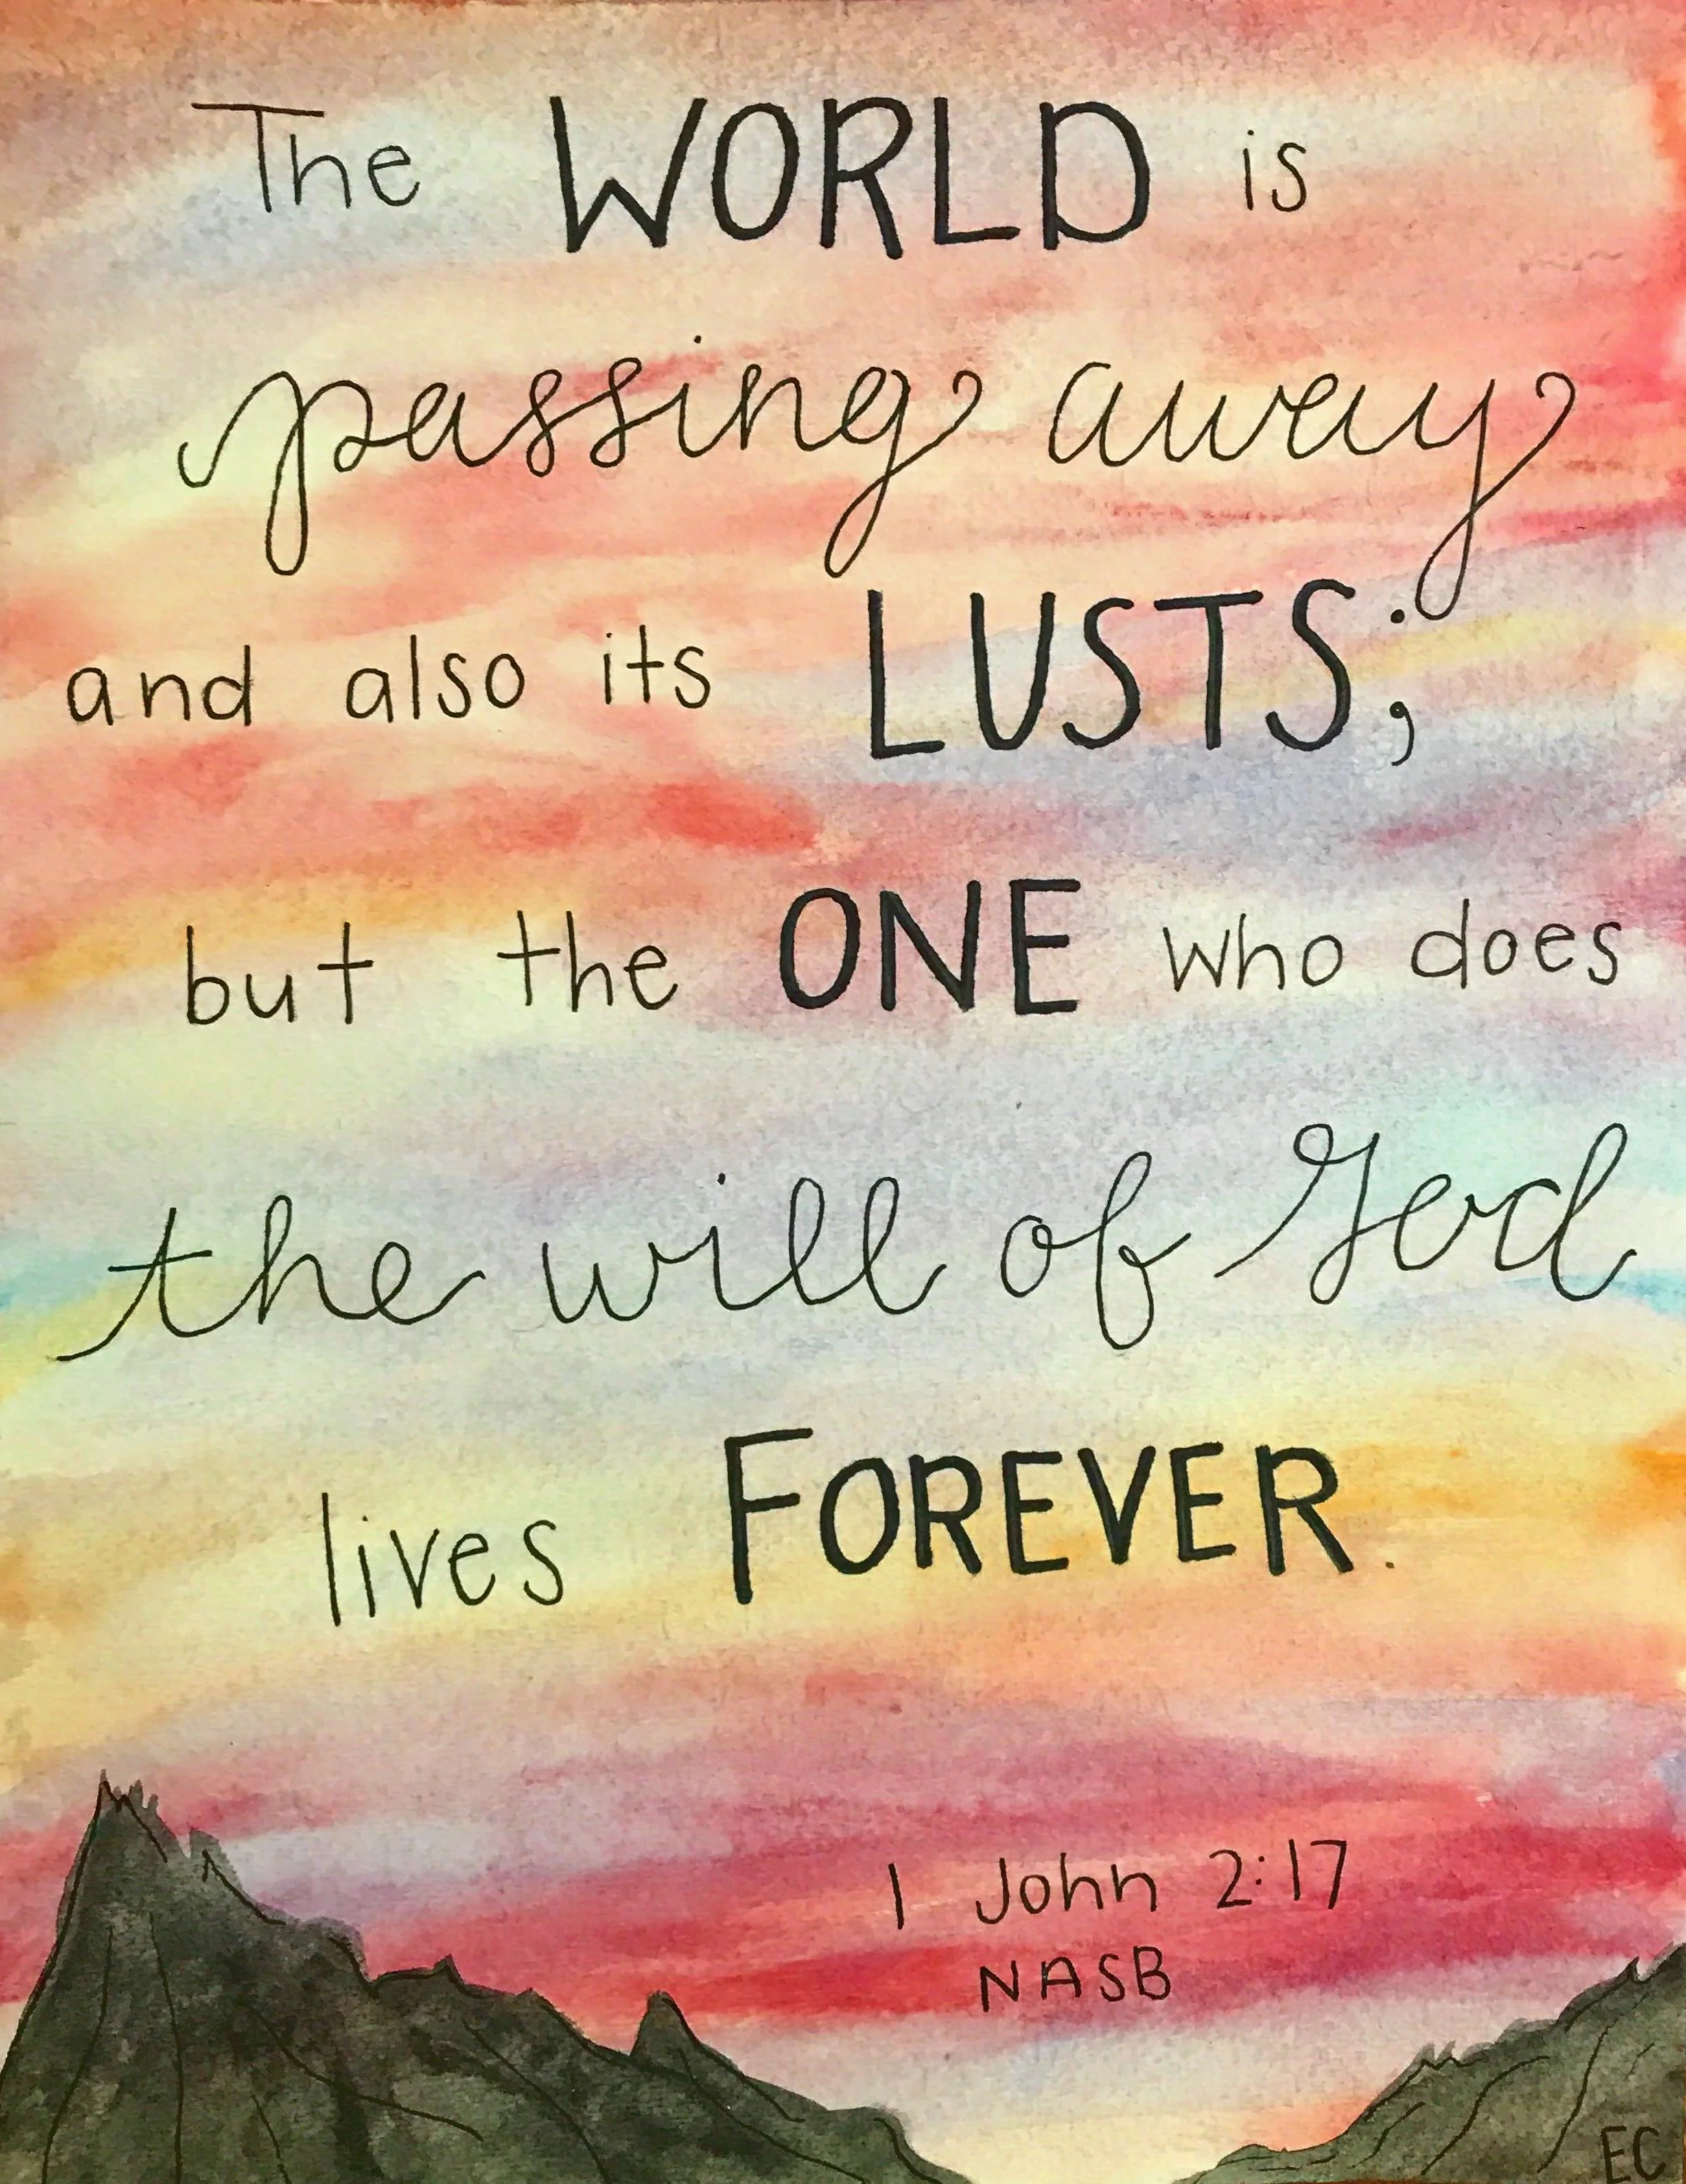 The WORLD is
passing away
and also its LUSTS;
but the ONE who does
the will of God
lives FOREVER.
1 John 2:17
NASB
EC